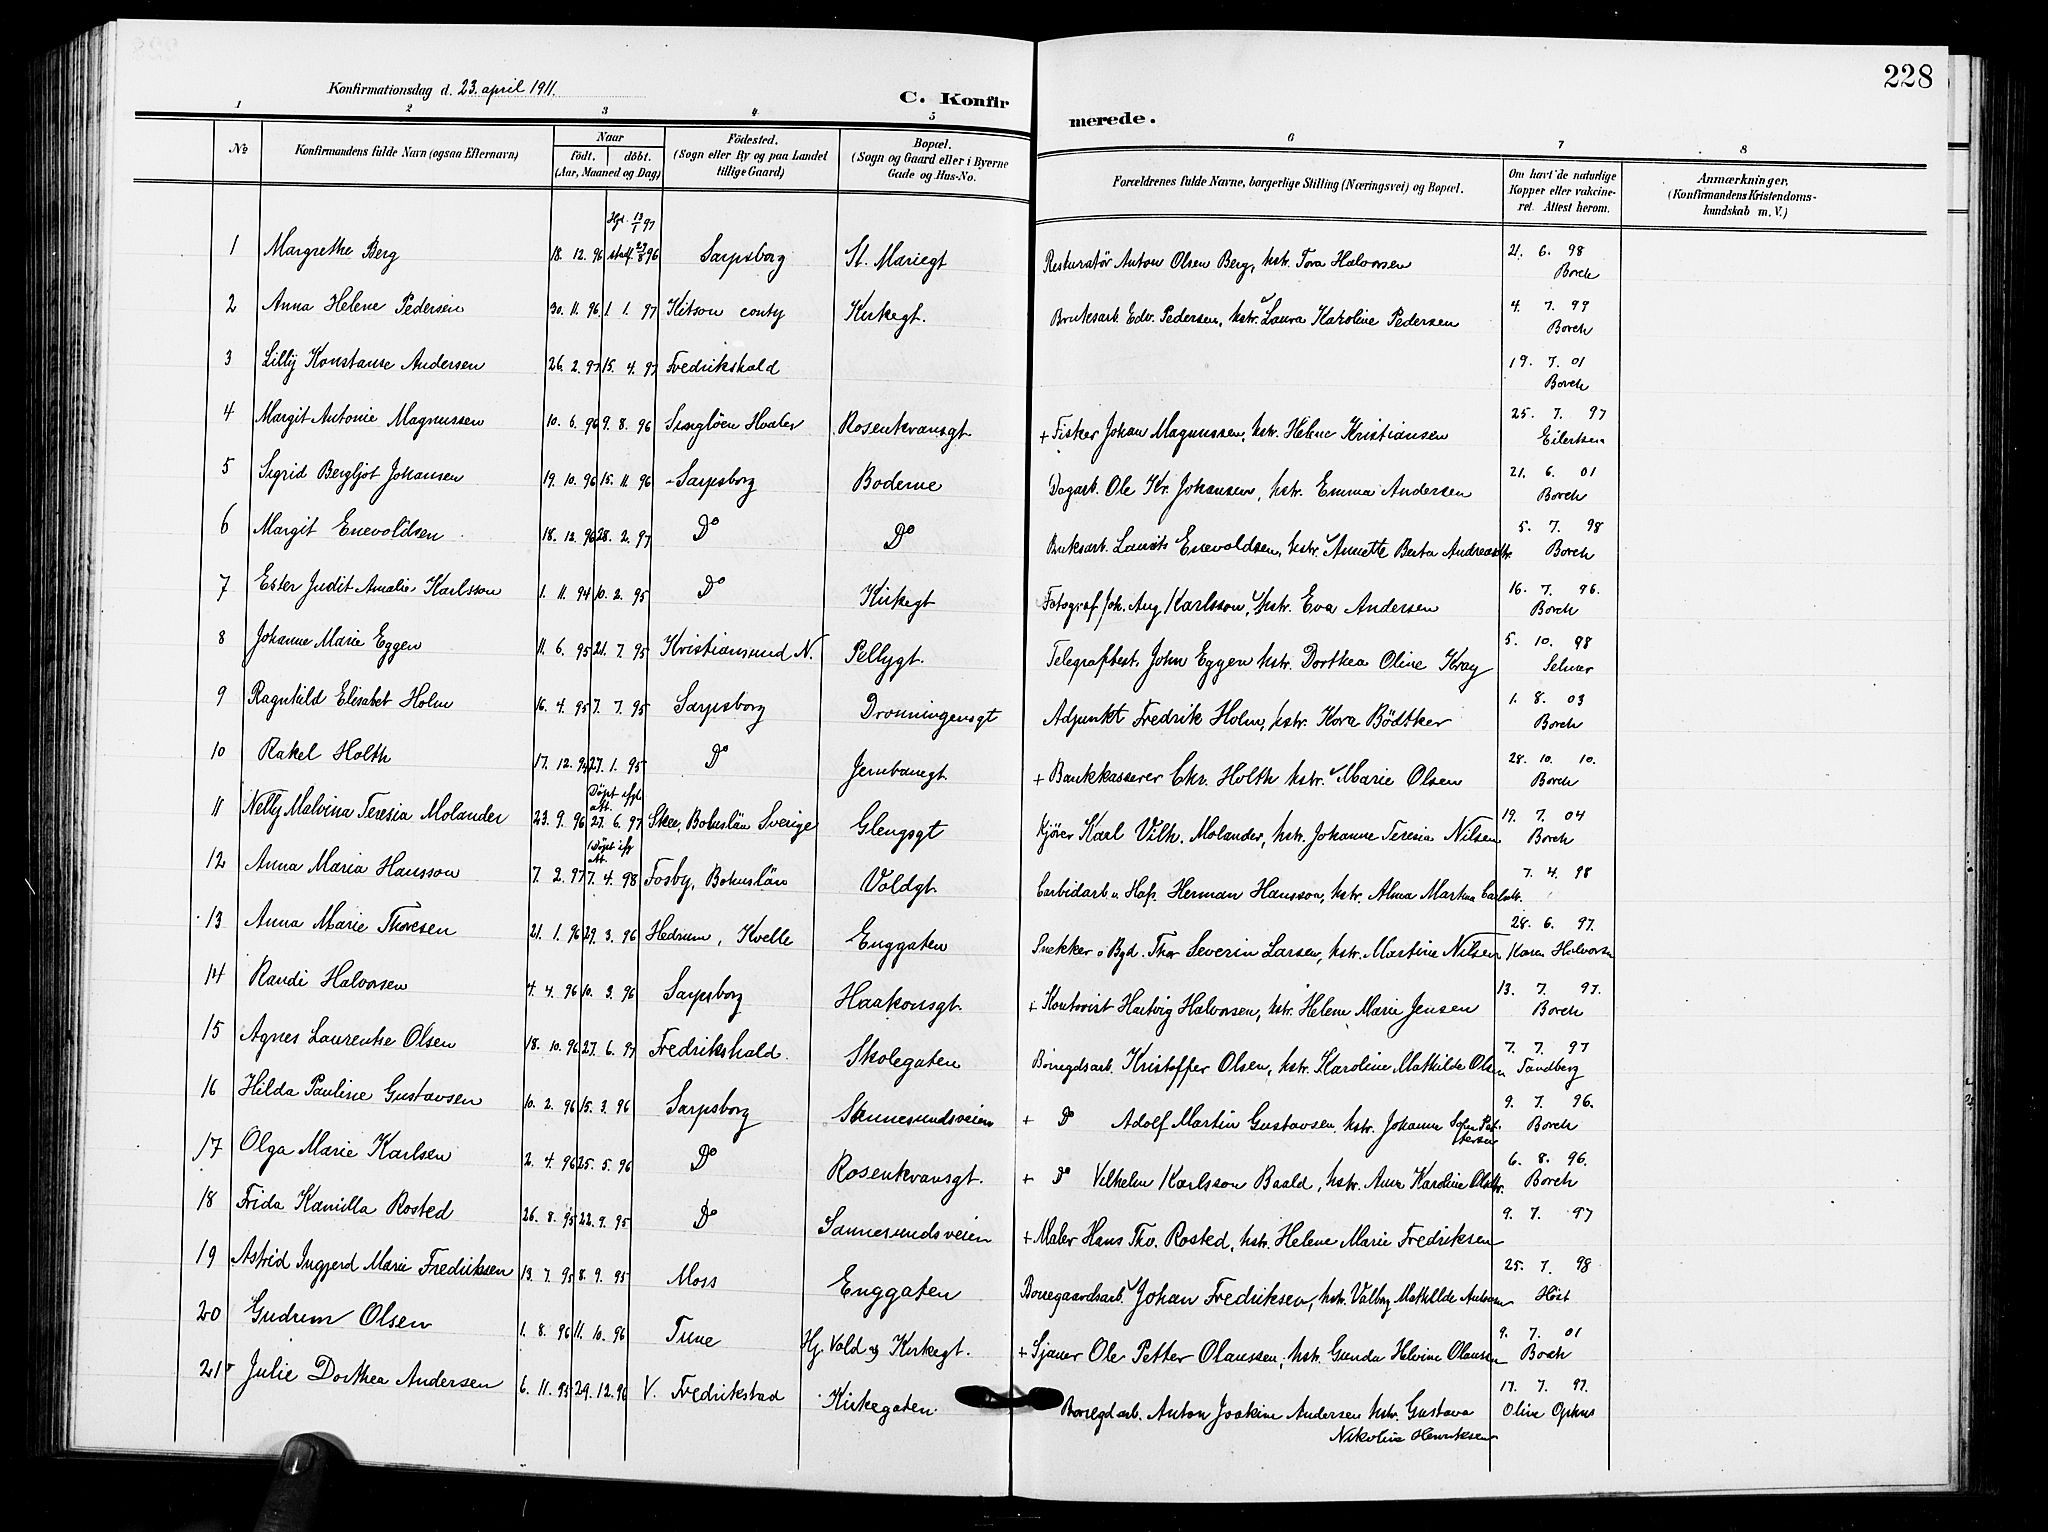 228
Konfirmationsdag d. 23. april 1911.
C. Konfirmerede.
1 2 3 4 5 6 7 8
No
Konfirmandens fulde Navn (ogsaa Efternavn)
Naar
födt. döbt.
(Aar, Maaned og Dag)
Födested.
(Sogn eller By og paa Landet
tillige Gaard)
Bopæl.
(Sogn og Gaard eller i Byerne
Gade og Hus-No.
Forældrenes fulde Navne, borgerlige Stilling (Næringsvei) og Bopæl.
Om havt de naturlige
Kopper eller vakcine-
ret. Attest herom.
Anmærkninger.
(Konfirmandens Kristendoms-
kundskab m. V.)
1 Margrethe Berg 18. 12. 96 Sarpsborg St. Mariegt Resturatør Anton Olsen Berg, hstr. Tora Halvorsen 21. 6. 98 Borch
2 Anna Helene Pedersen 30. 11. 96 1. 1. 97 Kitson conty Kirkegt. Bruksarb. Edv. Pedersen, hstr. Laura Karoline Pedersen 4. 7. 99 Borch
3 Lilly Konstanse Andersen 26. 2. 97 15. 4. 97 Fredrikshald 19. 7. 01 Borch
4 Margit Antonie Magnussen 10. 6. 96 9. 8. 96 Singlöen Hvaler Rosenkransgt + Fisker Johan Magnussen, hstr. Helene Kristiansen 25. 7. 97 Eilertsen
5 Sigrid Bergljot Johansen 19. 10. 96 15. 11. 96 Sarpsborg Boderne Dagarb. Ole Kr. Johansen, hstr. Emma Andersen 21. 6. 01 Borch
6 Margit Enevoldsen 18. 12. 96 28. 2. 97 Do Do Bruksarb. Laurits Enevoldsen, hstr. Annette Berta Andreasdtr. 5. 7. 98 Borch
7 Ester Judit Amalie Karlsson 1. 11. 94 10. 2. 95 Do Kirkegt Fotograf Joh. Aug Karlsson, hstr. Eva Andersen 16. 7. 96. Borch
8 Johanne Marie Eggen 11. 6. 95 21. 7. 95 Kristiansund N. Pellygt. Telegrafbest. John Eggen hstr. Dorthea Oline Krag 5. 10. 98 Selmer
9 Ragnhild Elisabet Holm 16. 4. 95 7. 7. 95 Sarpsborg Dronningensgt Adjunkt Fredrik Holm, hstr. Kora Bödtker 1. 8. 03 Borch
10 Rakel Holth 17. 12. 94 27. 1. 95 Do Jernbanegt + Bankkasserer Chr. Holth hstr. Marie Olsen 28. 10. 10. Borch
11 Nelly Malvina Teresia Molander 23. 9. 96 Döpt ifgl. att. 27. 6. 97 Skee, Bohuslän Sverige Glengsgt Kjörer Karl Vilh. Molander, hstr. Johanne Teresia Nilsen 19. 7. 04 Borch
12 Anna Maria Hansson 7. 2. 97 Döpt ifg att. 7. 4. 98 Fosby, Bohuslän Voldgt. Carbidarb. v. Haf. Herman Hansson, hstr. Alma Martina 7. 4. 98
13 Anna Marie Thoresen 21. 1. 96 29. 3. 96 Hedrum, Kvelle Enggaten Snekker o Bgd. Thor Severin Larsen, hstr. Martine Nilsen 28. 6. 97. Karen Halvorsen
14 Randi Halvorsen 4. 4. 96 10. 3. 96 Sarpsborg Haakonsgt. + Kontorist Hartvig Halvorsen, hstr. Helene Marie Jensen 13. 7. 97. Borch
15 Agnes Laurentse Olsen 18. 10. 96 27. 6. 97 Fredrikshald. Skolegaten Borregdsarb. Kristoffer Olsen, hstr. Karoline Mathilde Olsen 7. 7. 97 Tandberg
16 Hilda Pauline Gustavsen 10. 2. 96 15. 3. 96 Sarpsborg Sannesundsveien + Do Adolf Martin Gustavsen, hstr. Johanne 9. 7. 96. Borch
17 Olga Marie Karlsen 2. 4. 96 25. 5. 96 Do Rosenkransgt. + Do Vilhelm Karlsson Baald, hstr. Anna Karoline Olsdtr. 6. 8. 96. Borch
18 Frida Kamilla Rosted 26. 8. 95 22. 9. 95 Do Sannesundsveien + Maler Hans Thv. Rosted, hstr. Helene Marie Fredriksen 9. 7. 97
19 Astrid Ingjerd Marie Fredriksen 13. 7. 95 8. 9. 95 Moss Enggaten Borregaardsarb. Johan Fredriksen, hstr. Valborg Mathilde Antonsen 25. 7. 98 Höst
20 Gudrun Olsen 1. 8. 96 11. 10. 96 Tune Hj. Vold og Kirkegt. + Sjauer Ole Petter Olaussen, hstr. Gunda Helvine Olausen 9. 7. 01 Borch
21 Julie Dorthea Andersen 6. 11. 95 29. 12. 96 V. Fredrikstad Kirkegaten Borregd arb. Anton Joakim Andersen hstr. Gustava Nikoline Henriksen 17. 7. 97. Oline Ophus